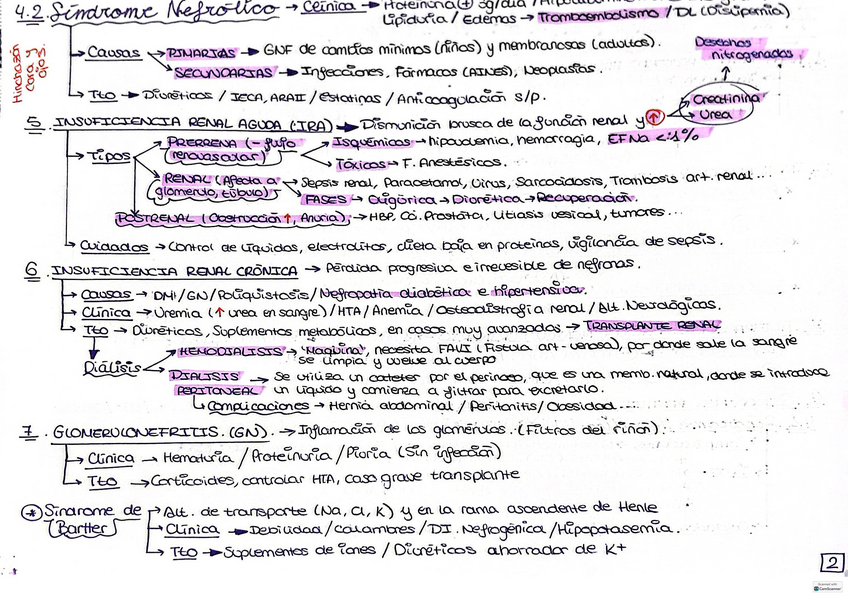 4.2. Síndrome Nefrótico → Clínica → Proteinuria (+) 3g/día /
Lipiduria / Edemas → Tromboembolismo / DL (Dislipemia)
Hinchazón cara y ojos.
Causas → PIMARIAS → GNF de cambios mínimos (niños) y membranosas (adultos).
Desechos nitrogenados
SECUNDARIAS → Infecciones, Fármacos (AINES), Neoplasias.
Tto → Diuréticos / IECA, ARAII / estatinas / Anticoagulación s/p.
Creatinina
Urea
5. INSUFICIENCIA RENAL AGUDA (IRA) → Dismunición brusca de la función renal y ↑
Tipos → PRERRENAL (- flujo renovascular) → Isquémicos → hipovolemia, hemorragia, EFNa <1%
Tóxicos → F. Anestésicos.
RENAL (Afecta a glomérulo, túbulo) → Sepsis renal, Paracetamol, Virus, Sarcoidosis, Trombosis art. renal...
FASES → Oligúrica → Diurética → Recuperación.
POSTRENAL (Obstrucción ↑, Anuria) → HBP, Ca. Prostáta, Litiasis vesical, tumores...
Cuidados → Control de líquidos, electrolitos, dieta baja en proteínas, vigilancia de sepsis.
6. INSUFICIENCIA RENAL CRÓNICA → Pérdida progresiva e irreversible de nefronas.
Causas → DM / GN / Poliquistosis / Nefropatía diabética e hipertensiva.
Clínica → Uremia (↑ urea en sangre) / HTA / Anemia / Osteodistrofia renal / Alt. Neurológicas.
Tto → Diuréticos, Suplementos metabólicos, en casos muy avanzados → TRANSPLANTE RENAL
Diálisis → HEMODIALISIS → "Maquina", necesita FAVI (Fístula art-venosa), por donde sale la sangre
se limpia y vuelve al cuerpo
DIALISIS PERITONEAL → Se utiliza un catéter por el perineo, que es una memb. natural, donde se introduce
un líquido y comienza a filtrar para excretarlo.
Complicaciones → Hernia abdominal / Peritonitis / Obesidad...
7. GLOMERULONEFRITIS (GN). → Inflamación de los glomérulos. (Filtros del riñón).
Clínica → Hematuria / Proteinuria / Piuria (Sin infección)
Tto → Corticoides, controlar HTA, caso grave transplante
* Síndrome de Bartter → Alt. de transporte (Na, Cl, K) y en la rama ascendente de Henle
Clínica → Debilidad / Calambres / DI. Nefrogénica / Hipopotasemia.
Tto → Suplementos de iones / Diuréticos ahorrador de K+
2
Scanned with
CamScanner